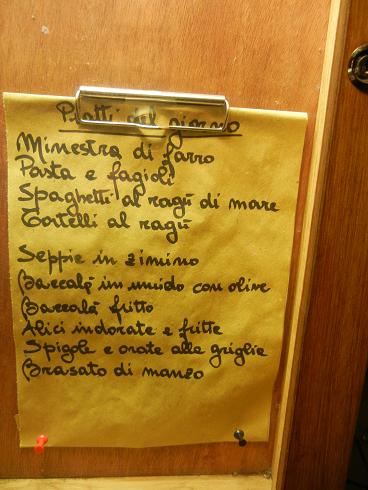 Piatti del giorno
Minestra di farro
Pasta e fagioli
Spaghetti al ragù di mare
Tortelli al ragù
Seppie in zimino
Baccalà in umido con olive
Baccalà fritto
Alici indorate e fritte
Spigole e orate alla griglia
Brasato di manzo